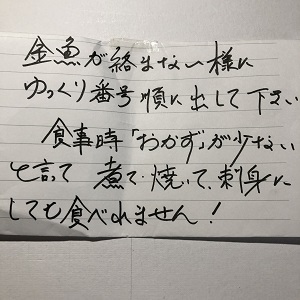 金魚が絡まない様に
ゆっくり番号順に出して下さい
食事時「おかず」が少ない
と言て 煮て・焼いて、刺身に
しても食べれません！